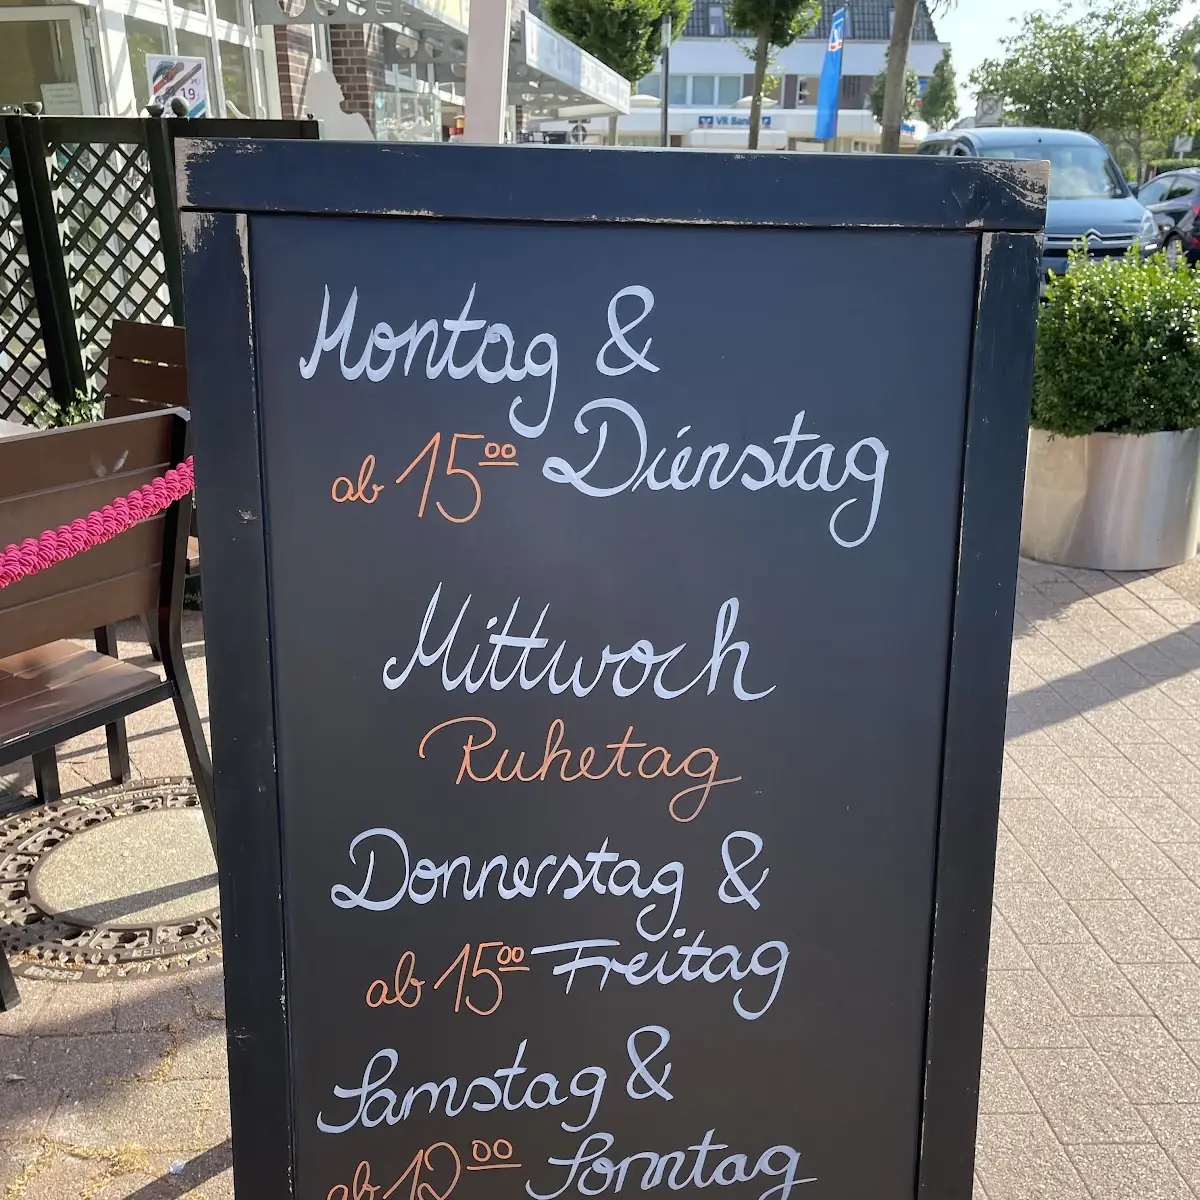 VR Bank
Montag &
ab 15⁰⁰ Dienstag
Mittwoch
Ruhetag
Donnerstag &
ab 15⁰⁰ Freitag
Samstag &
ab 12⁰⁰ Sonntag